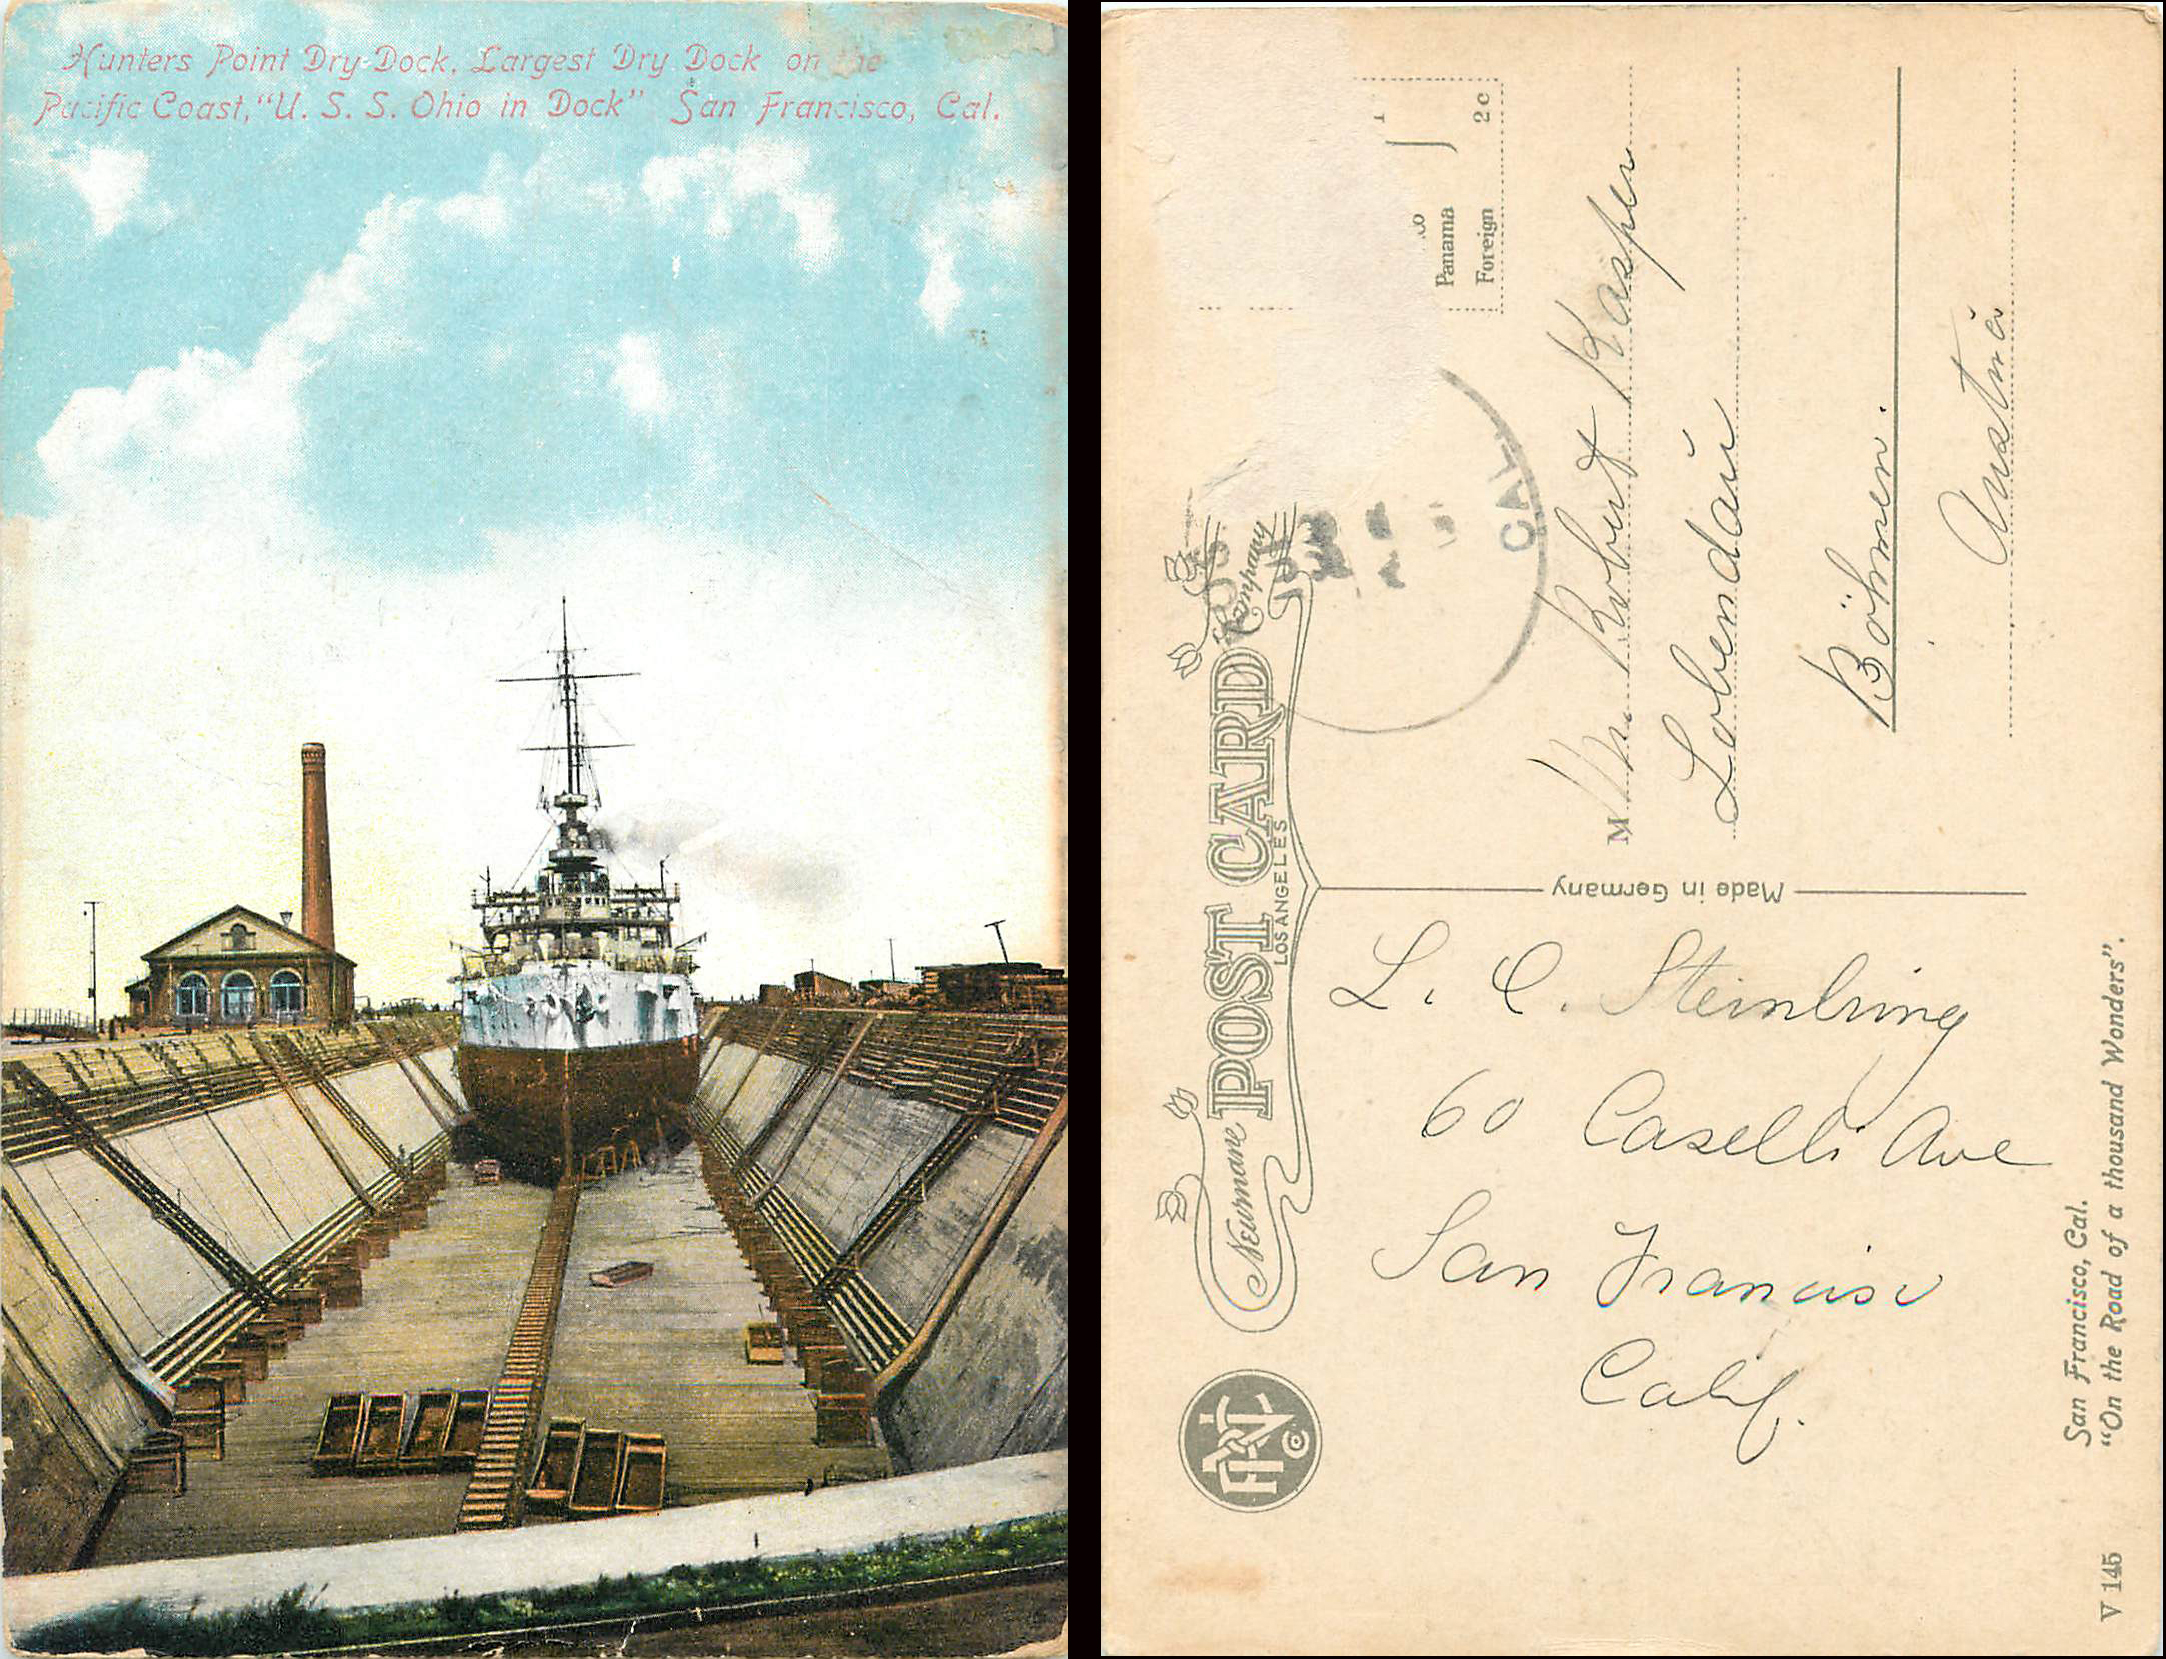 Hunters Point Dry Dock, Largest Dry Dock on the
Pacific Coast, "U. S. S. Ohio in Dock" San Francisco, Cal.
Newmann POST CARD Company
LOS ANGELES
Panama
Foreign 2c
CAL
Made in Germany
L. C. Steinbring
60 Caselli Ave
San Francisco
Calif.
M
Robert Kasper
Lobendau
Böhmen.
Austria
San Francisco, Cal.
"On the Road of a thousand Wonders".
V 145